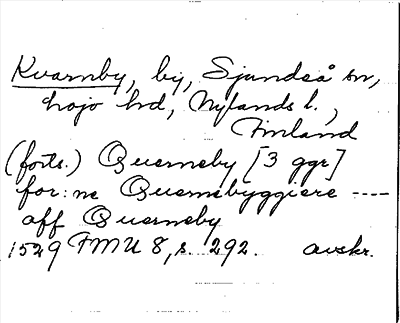 Kvarnby, by, Sjundeå sn,
Lojo hd, Nylands l.,
Finland
(forts.) Querneby [3 ggr]
for:ne Quernebyggiere ----
aff Querneby
1529 FMU 8, s. 292. avskr.